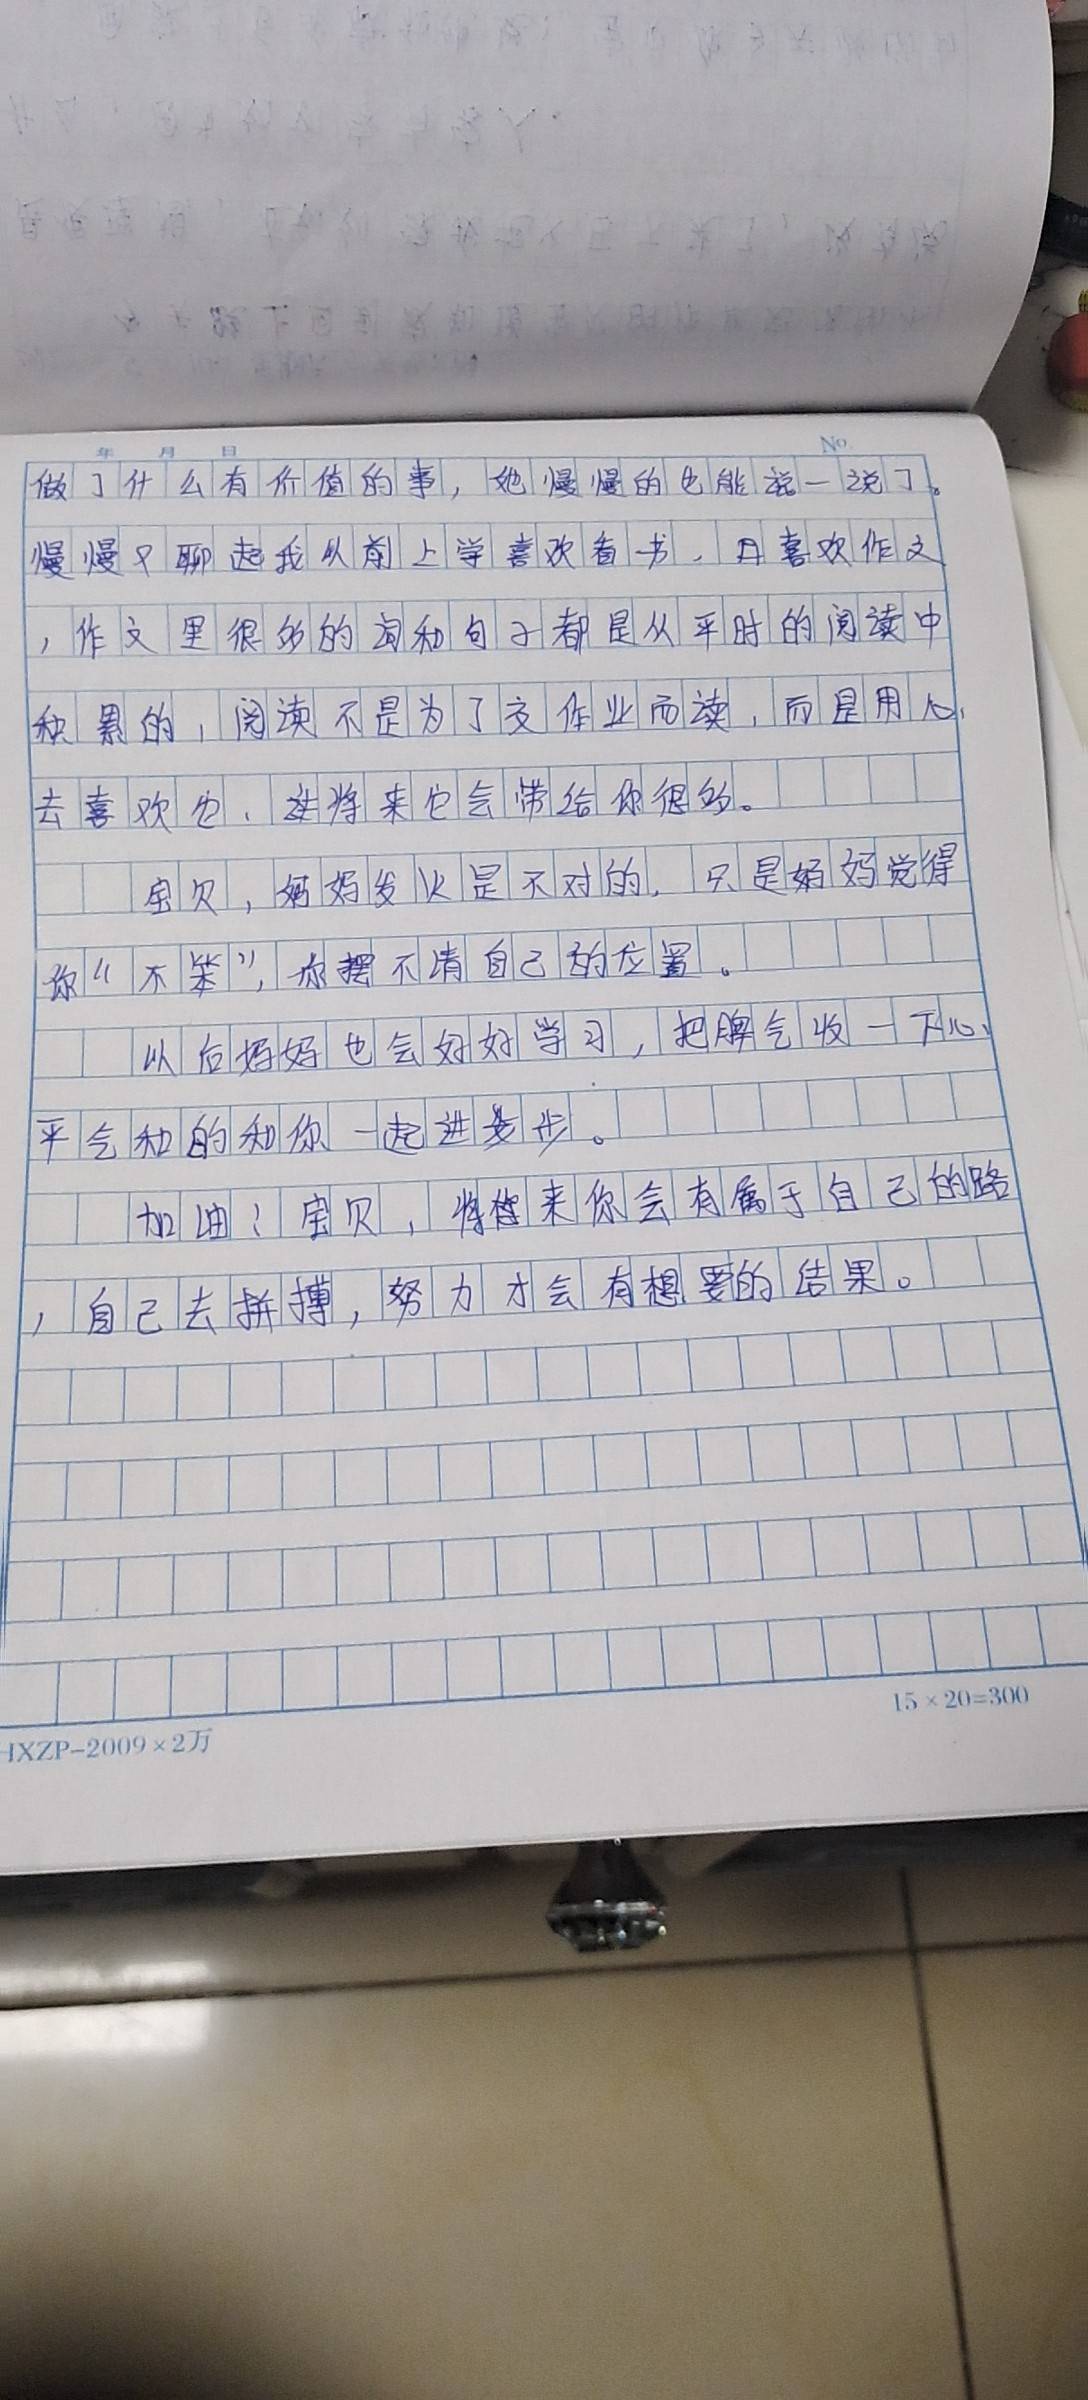 年 月 日 No.
做了什么有价值的事，她慢慢的也能说一说了。
慢慢又聊起我从前上学喜欢看书，且喜欢作文
，作文里很多的词和句子都是从平时的阅读中
积累的，阅读不是为了交作业而读，而是用心
去喜欢它，将来它会带给你很多。
宝贝，妈妈发火是不对的，只是妈妈觉得
你“不笨”，你摆不清自己的位置。
以后妈妈也会好好学习，把脾气收一下心
平气和的和你一起进步。
加油！宝贝，将来你会有属于自己的路
，自己去拼搏，努力才会有想要的结果。
HXZP-2009×2万
15×20=300